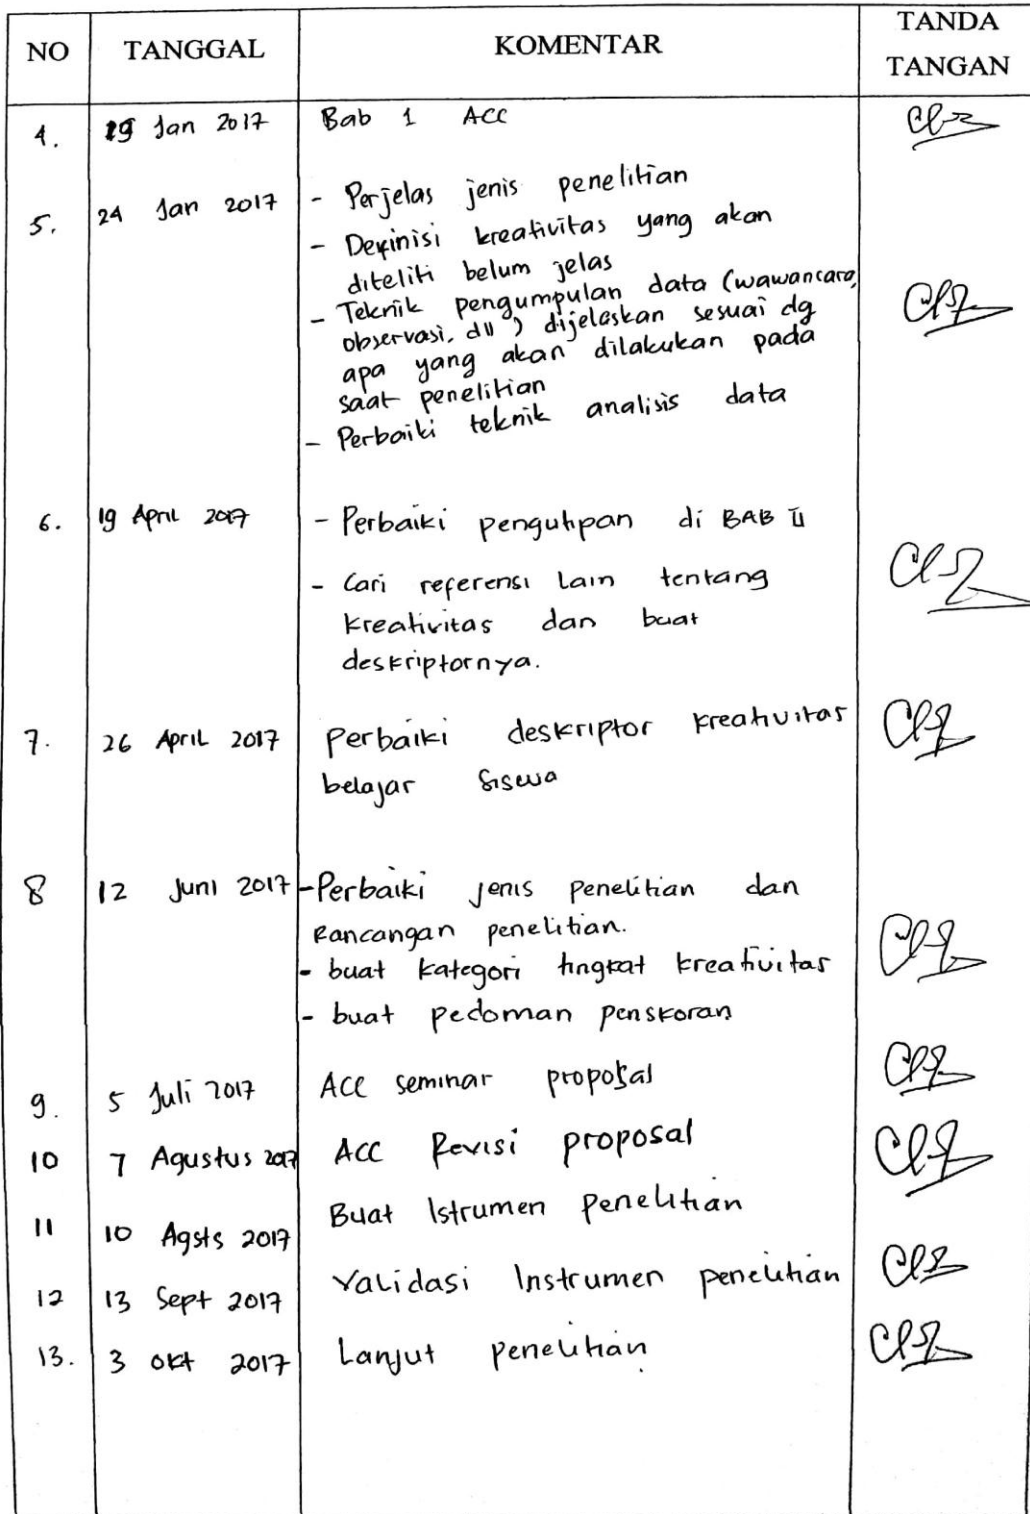 NO TANGGAL KOMENTAR TANDA TANGAN
4. 19 Jan 2017 Bab 1 ACC
5. 24 Jan 2017 - Perjelas jenis penelitian
- Definisi kreativitas yang akan
diteliti belum jelas
- Teknik pengumpulan data (wawancara,
observasi, dll) dijelaskan sesuai dg
apa yang akan dilakukan pada
saat penelitian
- Perbaiki teknik analisis data
6. 19 April 2017 - Perbaiki pengutipan di BAB II
- Cari referensi Lain tentang
kreativitas dan buat
deskriptornya.
7. 26 April 2017 Perbaiki deskriptor kreativitas
belajar siswa
8 12 Juni 2017 - Perbaiki jenis penelitian dan
Rancangan penelitian.
- buat kategori tingkat kreativitas
- buat pedoman penskoran
9. 5 Juli 2017 ACC seminar proposal
10 7 Agustus 2017 ACC Revisi proposal
11 10 Agsts 2017 Buat Istrumen penelitian
12 13 Sept 2017 Validasi Instrumen penelitian
13. 3 Okt 2017 Lanjut penelitian